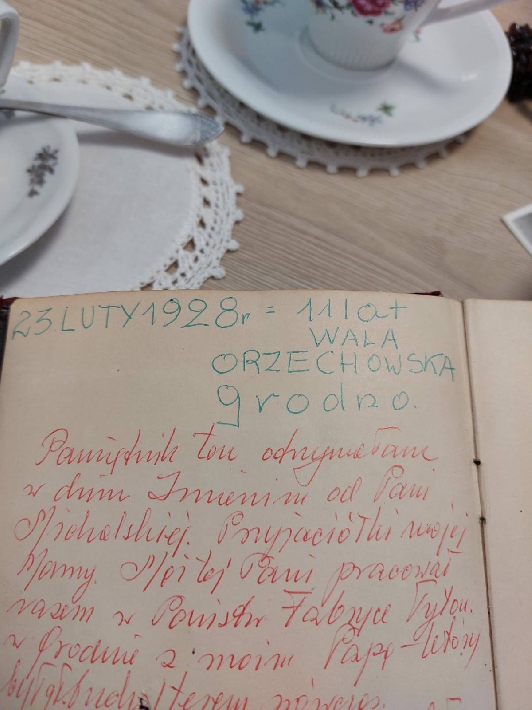 23 LUTY 1928r = 11 lat
WALA
ORZECHOWSKA
grodno.
Pamiętnik ten otrzymałam
w dniu Imienin od Pani
Michalskiej. Przyjaciółki mojej
Mamy. Mąż tej Pani pracował
razem w Państw Fabryce Tyton.
w Grodnie z moim Papą - który
był gł. buchalterem wówczas.